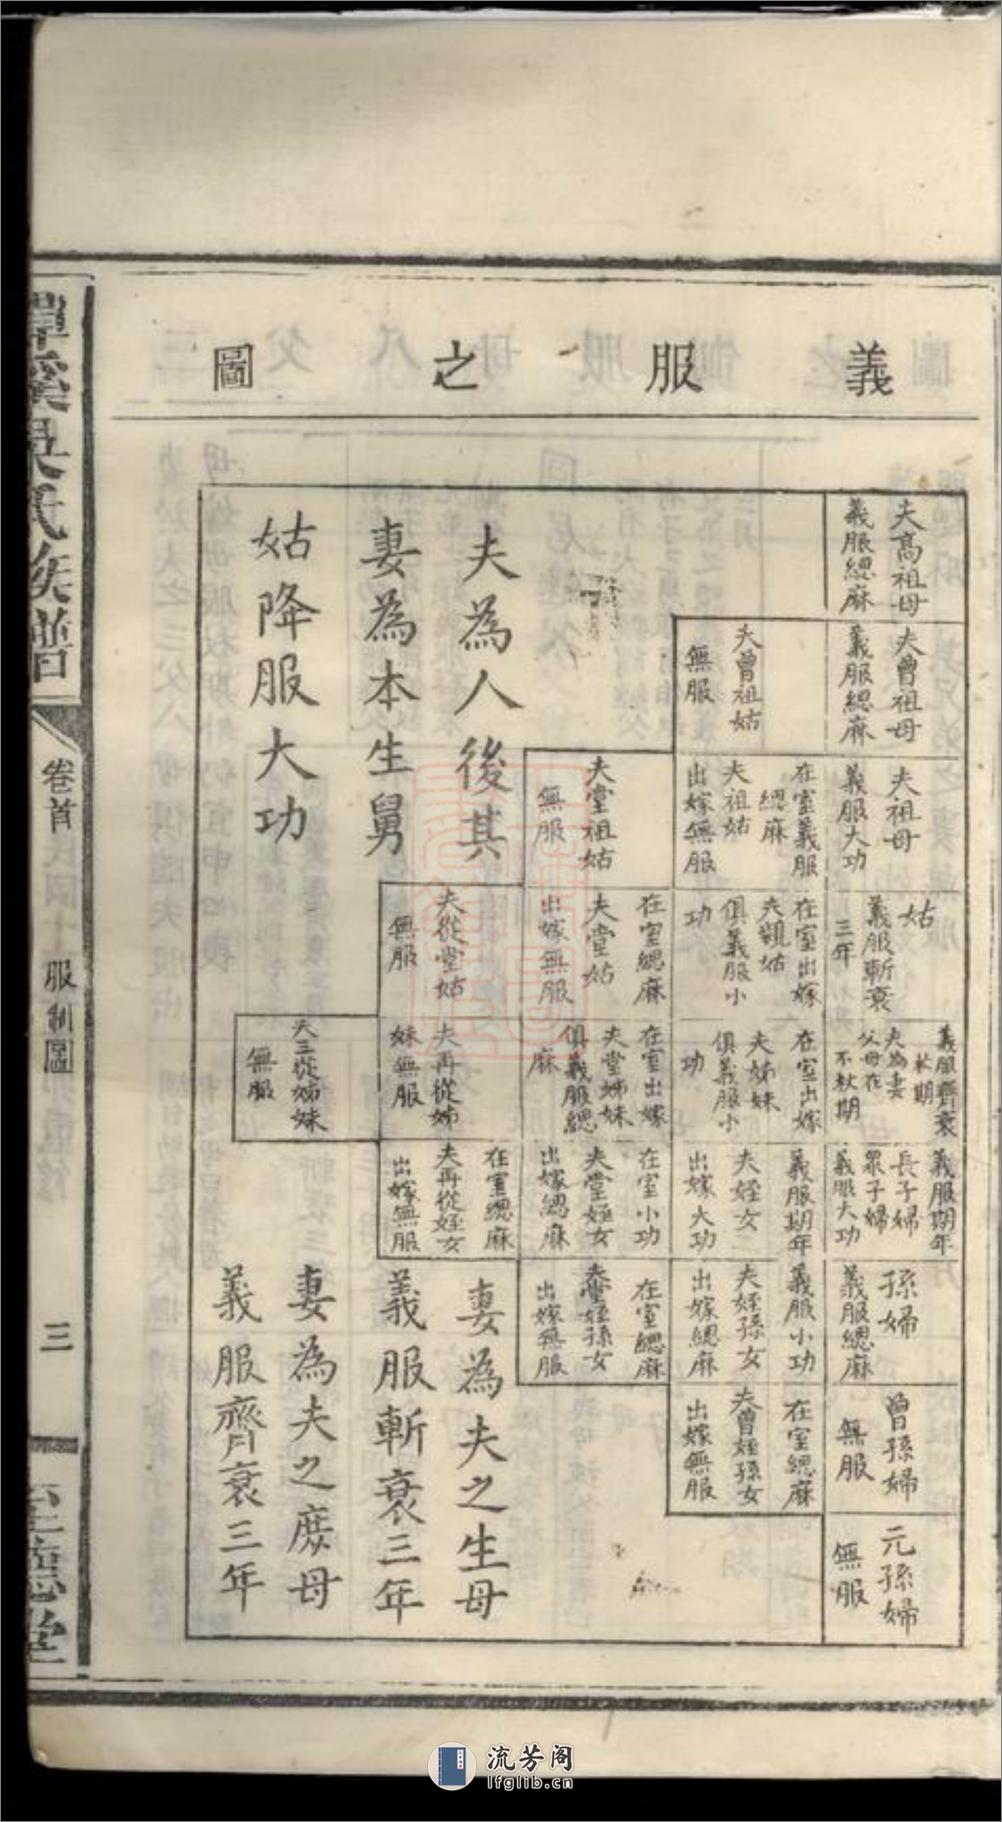 義服之圖
夫高祖母
義服緦麻
夫曾祖母
義服緦麻
夫曾祖姑
無服
夫祖母
義服大功
在室義服
緦麻
夫祖姑
出嫁無服
夫堂祖姑
無服
姑
義服斬衰
三年
在室出嫁
夫親姑
俱義服小
功
在室緦麻
夫堂姑
出嫁無服
夫從堂姑
無服
義服齊衰
杖期
夫為妻
父母在
不杖期
在室出嫁
夫姊妹
俱義服小
功
在室出嫁
夫堂姊妹
俱義服緦
麻
夫再從姊
妹無服
夫三從姊妹
無服
義服期年
長子婦
眾子婦
義服大功
義服期年
夫姪女
出嫁大功
在室小功
夫堂姪女
出嫁緦麻
在室緦麻
夫再從姪女
出嫁無服
孫婦
義服緦麻
義服小功
夫姪孫女
出嫁緦麻
在室緦麻
夫堂姪孫女
出嫁無服
曾孫婦
無服
在室緦麻
夫曾姪孫女
出嫁無服
元孫婦
無服
夫為人後其
妻為本生舅
姑降服大功
妻為夫之生母
義服斬衰三年
妻為夫之庶母
義服齊衰三年
溪吳氏族譜
卷首
服制圖
三
至德堂
流芳阁
lfglib.cn